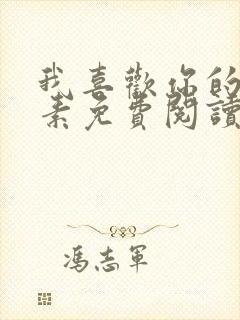 我喜歡你的
素免費閱讀
馮志軍